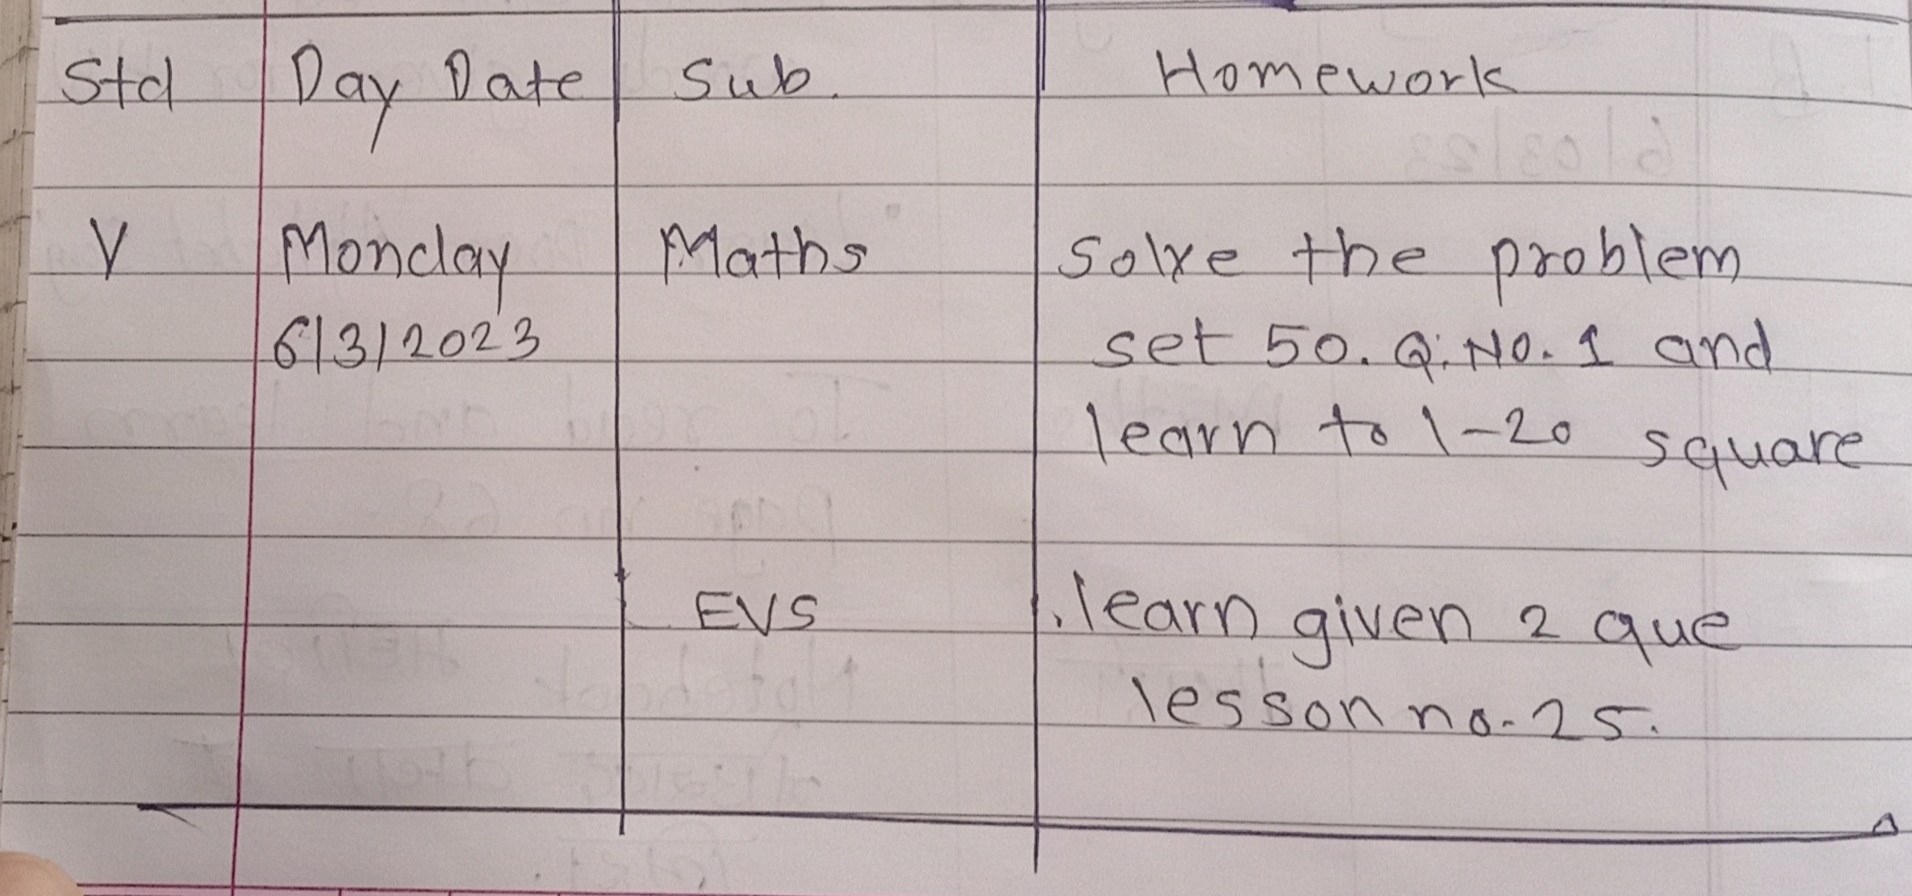 Std Day Date Sub. Homework
V Monday Maths Solve the problem
6/3/2023 set 50. Q. No. 1 and
learn to 1-20 square
EVS . learn given 2 que
lesson no. 25.